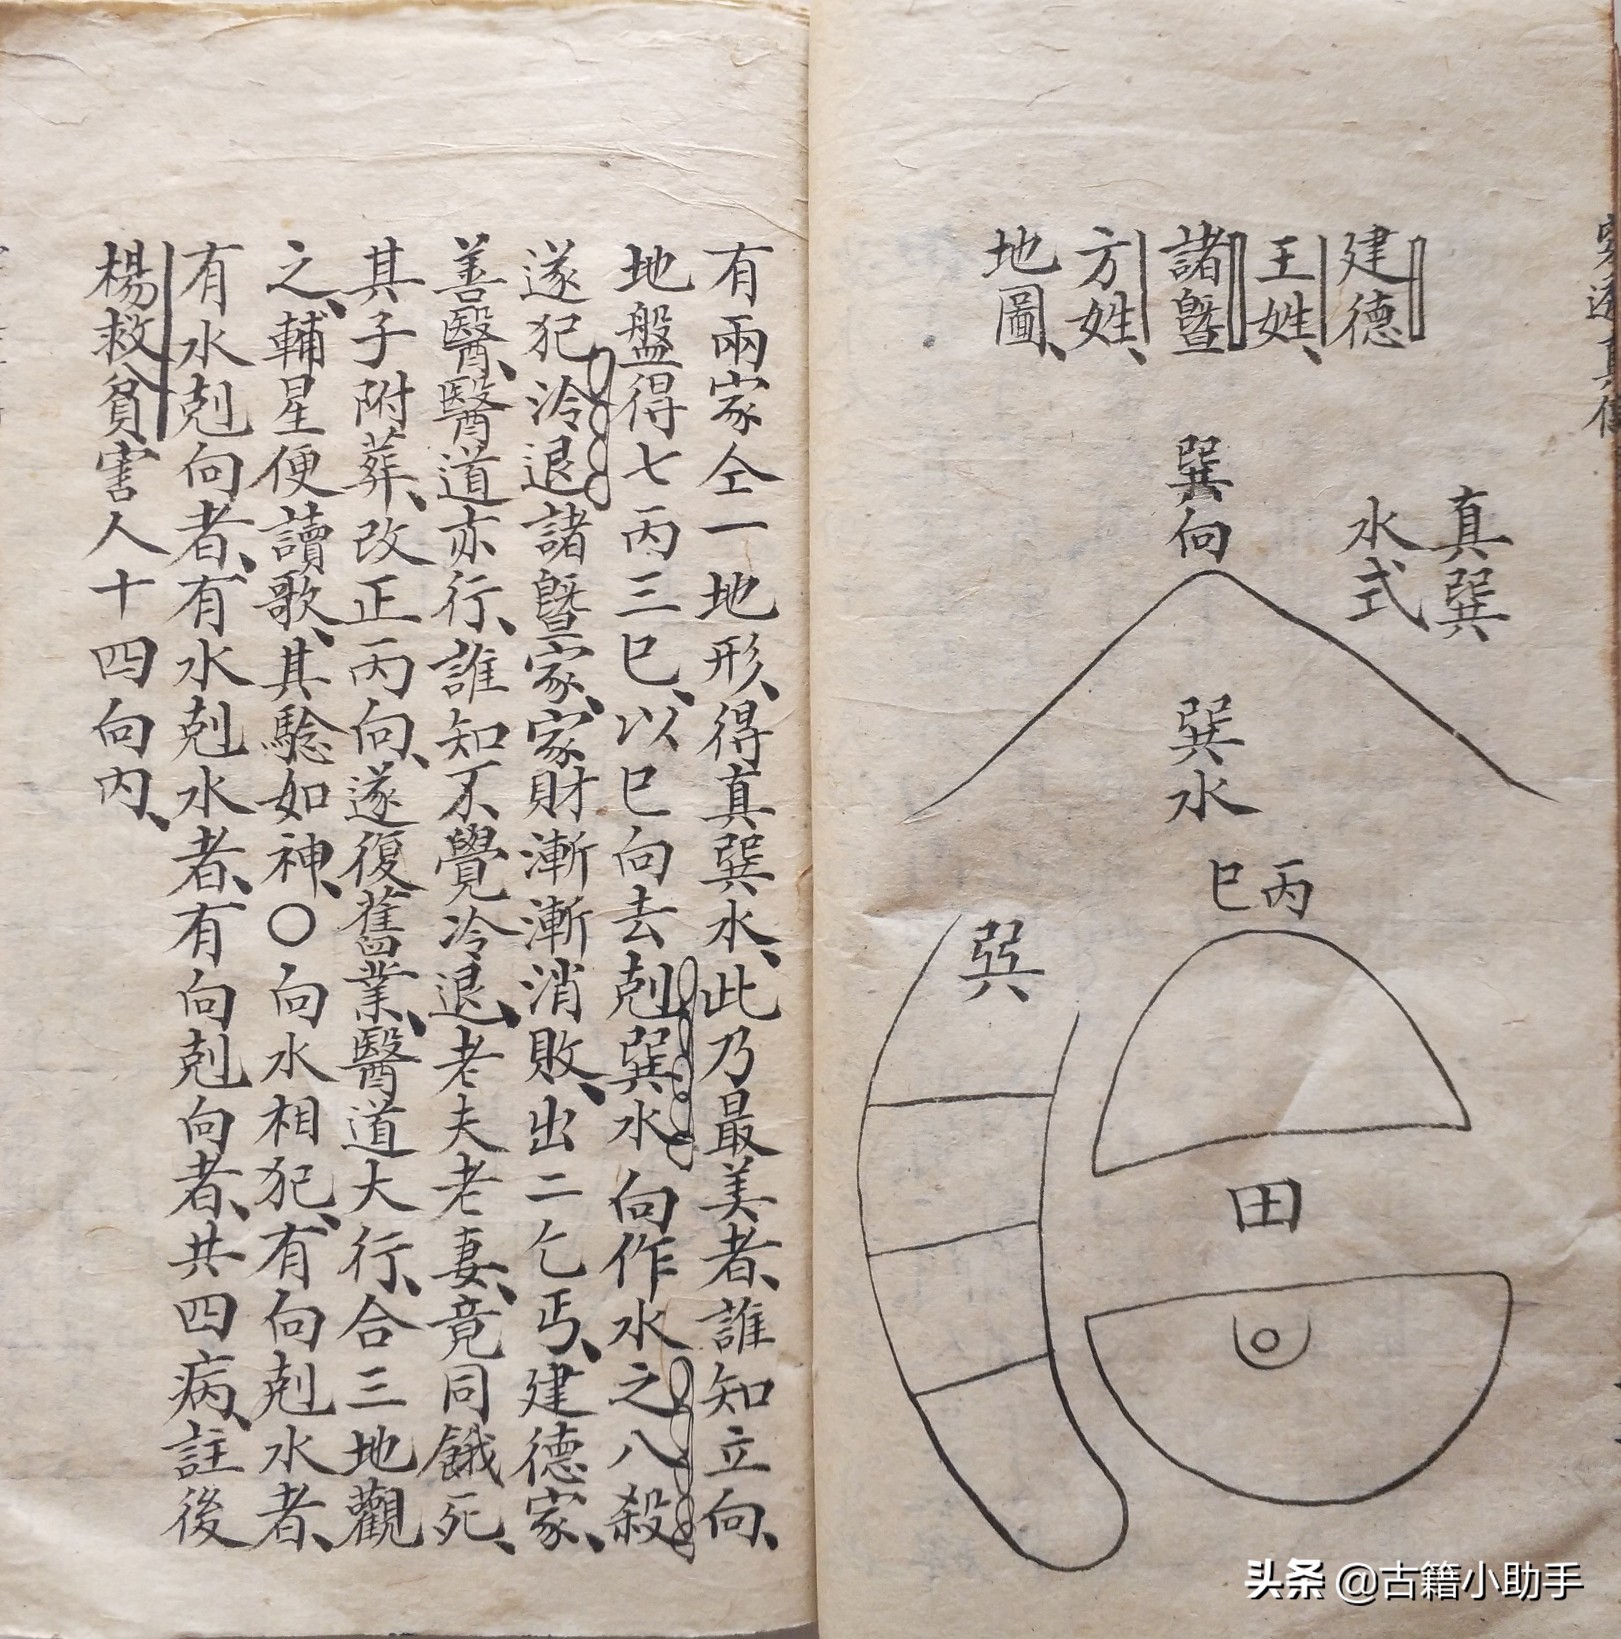 建德
王姓、
諸暨
方姓、
地圖、
真巽
水式
巽向
巽水
丙
巳
巽
田
有兩家仝一地形、得真巽水、此乃最美者、誰知立向、
地盤得七丙三巳、以巳向去剋巽水向作水之八殺
遂犯冷退諸暨家、家財漸漸消敗、出二乞丐、建德家、
善醫、醫道亦行、誰知不覺冷退、老夫老妻、竟同餓死、
其子附葬、改正丙向、遂復舊業、醫道大行、合三地觀
之、輔星便讀歌、其騐如神、〇向水相犯、有向剋水者、
有水剋向者、有水剋水者、有向剋向者、共四病、註後
楊救貧害人十四向內、
头条 @古籍小助手